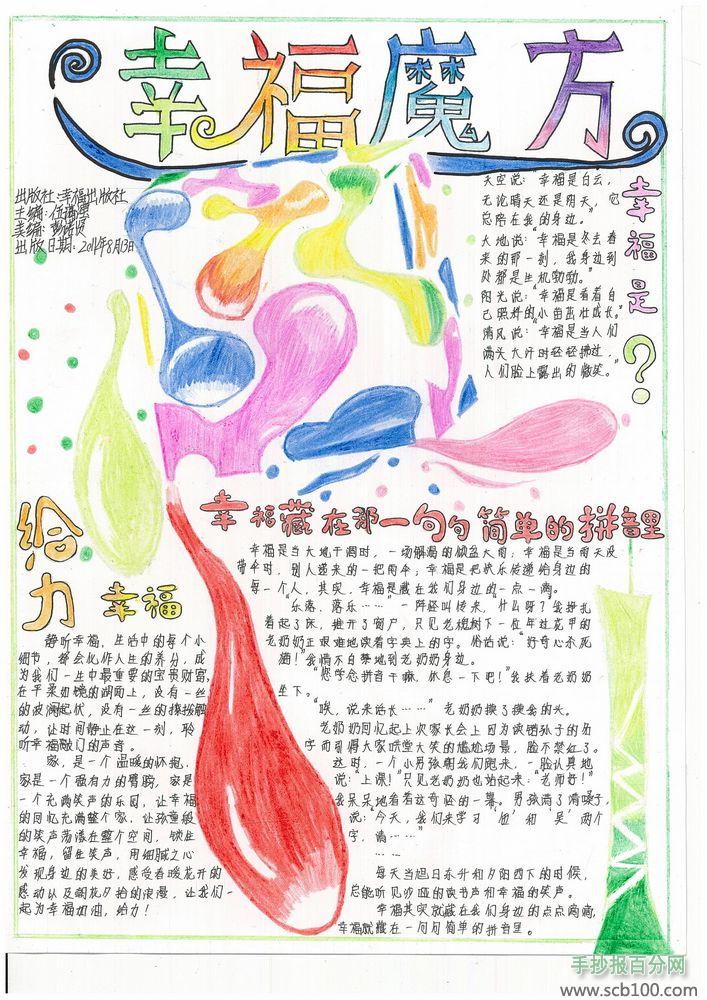 幸福魔方
出版社:幸福出版社
主编:
美编:
出版日期:2011年8月13日
幸福是?
天空说:“幸福是白云,
无论晴天还是阴天,它
总陪在我的身边。”
大地说:“幸福是冬去春
来的那一刻,我身边到
处都是生机勃勃。”
阳光说:“幸福是看着自
己照料的小苗茁壮成长。”
清风说:“幸福是当人们
满头大汗时轻轻拂过,
人们脸上露出的微笑。”
给力幸福
静听幸福,生活中的每个小
细节,都会化作人生的养分,成
为我们一生中最重要的宝贵财富,
在平柔如镜的湖面上,没有一丝
的波澜起伏,没有一丝的
动,让时间静止在这一刻,聆
听幸福敲门的声音。
家,是一个温暖的怀抱,
家是一个强有力的臂膀,家是
一个充满笑声的乐园,让幸福
的回忆充满整个家,让孩童般
的笑声荡漾在整个空间,锁住
幸福,留住笑声,用细腻之心
发现身边的美好,感受春暖花开的
感动以及朝花夕拾的浪漫,让我们一
起为幸福加油,给力!
幸福藏在那一句句简单的拼音里
幸福是当大地干涸时,一场解渴的倾盆大雨;幸福是当雨天没
带伞时,别人递来的一把雨伞;幸福是把快乐传递给身边的
每一个人,其实,幸福是藏在我们身边的一点一滴。
“乐落,落乐……”一阵怪叫传来,什么呀?我挣扎
着起了床,推开了窗户,只见老槐树下一位年过花甲的
老奶奶正艰难地读着字典上的字。俗话说:“好奇心杀死
猫!”我情不自禁地到老奶奶身边。
“您学念拼音干嘛,休息一下吧!”我扶着老奶奶
坐下。
“唉,说来话长……”老奶奶摸了摸我的头。
老奶奶回忆起上次家长会上因为读错孙子的名
字而引得大家哄堂大笑的尴尬场景,脸不禁红了。
这时,一个小男孩朝我们跑来,一脸认真地
说:“上课!”只见老奶奶也站起来:“老师好!”
我呆呆地看着这奇怪的一幕。男孩清了清嗓子,
说:“今天,我们来学习‘旭’和‘昊’两个
字,请……”
……
每天当旭日东升和夕阳西下的时候,
总能听见沙哑的读书声和幸福的笑声。
幸福其实就藏在我们身边的点点滴滴,
幸福就藏在一句句简单的拼音里。
手抄报百分网
www.scb100.com